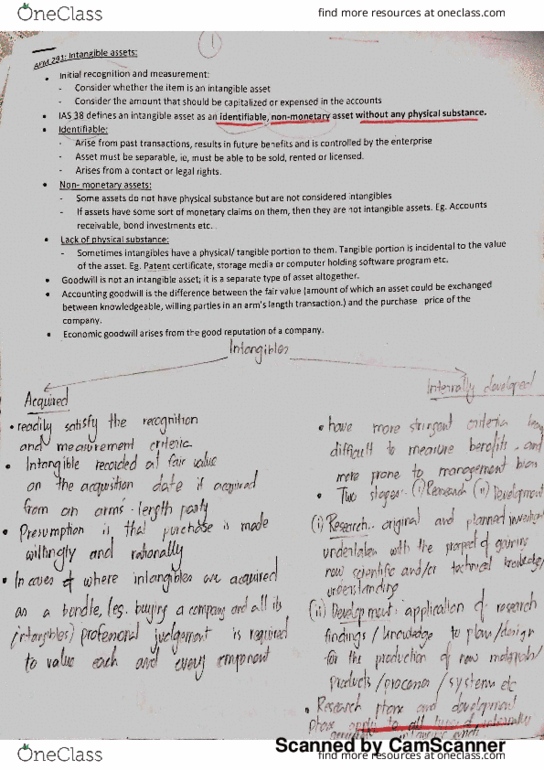 OneClass
find more resources at oneclass.com
1
AFM 291: Intangible assets:
Initial recognition and measurement:
- Consider whether the item is an intangible asset
- Consider the amount that should be capitalized or expensed in the accounts
IAS 38 defines an intangible asset as an identifiable, non-monetary asset without any physical substance.
Identifiable:
- Arise from past transactions, results in future benefits and is controlled by the enterprise
- Asset must be separable, ie, must be able to be sold, rented or licensed.
- Arises from a contact or legal rights.
Non- monetary assets:
- Some assets do not have physical substance but are not considered intangibles
- If assets have some sort of monetary claims on them, then they are not intangible assets. Eg. Accounts
receivable, bond investments etc.
Lack of physical substance:
- Sometimes intangibles have a physical/ tangible portion to them. Tangible portion is incidental to the value
of the asset. Eg. Patent certificate, storage media or computer holding software program etc.
Goodwill is not an intangible asset; it is a separate type of asset altogether.
Accounting goodwill is the difference between the fair value (amount of which an asset could be exchanged
between knowledgeable, willing parties in an arm's length transaction.) and the purchase price of the
company.
Economic goodwill arises from the good reputation of a company.
Intangibles
Acquired
readily satisfy the recognition
and measurement criteria.
Intangible recorded at fair value
on the acquisition date if acquired
from an arms-length party
Presumption is that purchase is made
willingly and rationally
In cases of where intangibles are acquired
as a bundle, (eg. buying a company and all its
intangibles) professional judgement is required
to value each and every component
Internally developed
have more stringent criteria
difficult to measure benefits, and
more prone to management bias
Two stages: (i) Research (ii) Development
(i) Research: original and planned
undertaken with the prospect of gaining
new scientific and/or technical knowledge/
understanding
(ii) Development: application of research
findings/knowledge to plan/design
for the production of new materials/
products/processes/systems etc
Research phase and development
phase apply to all types of internally
Scanned by CamScanner
OneClass
find more resources at oneclass.com